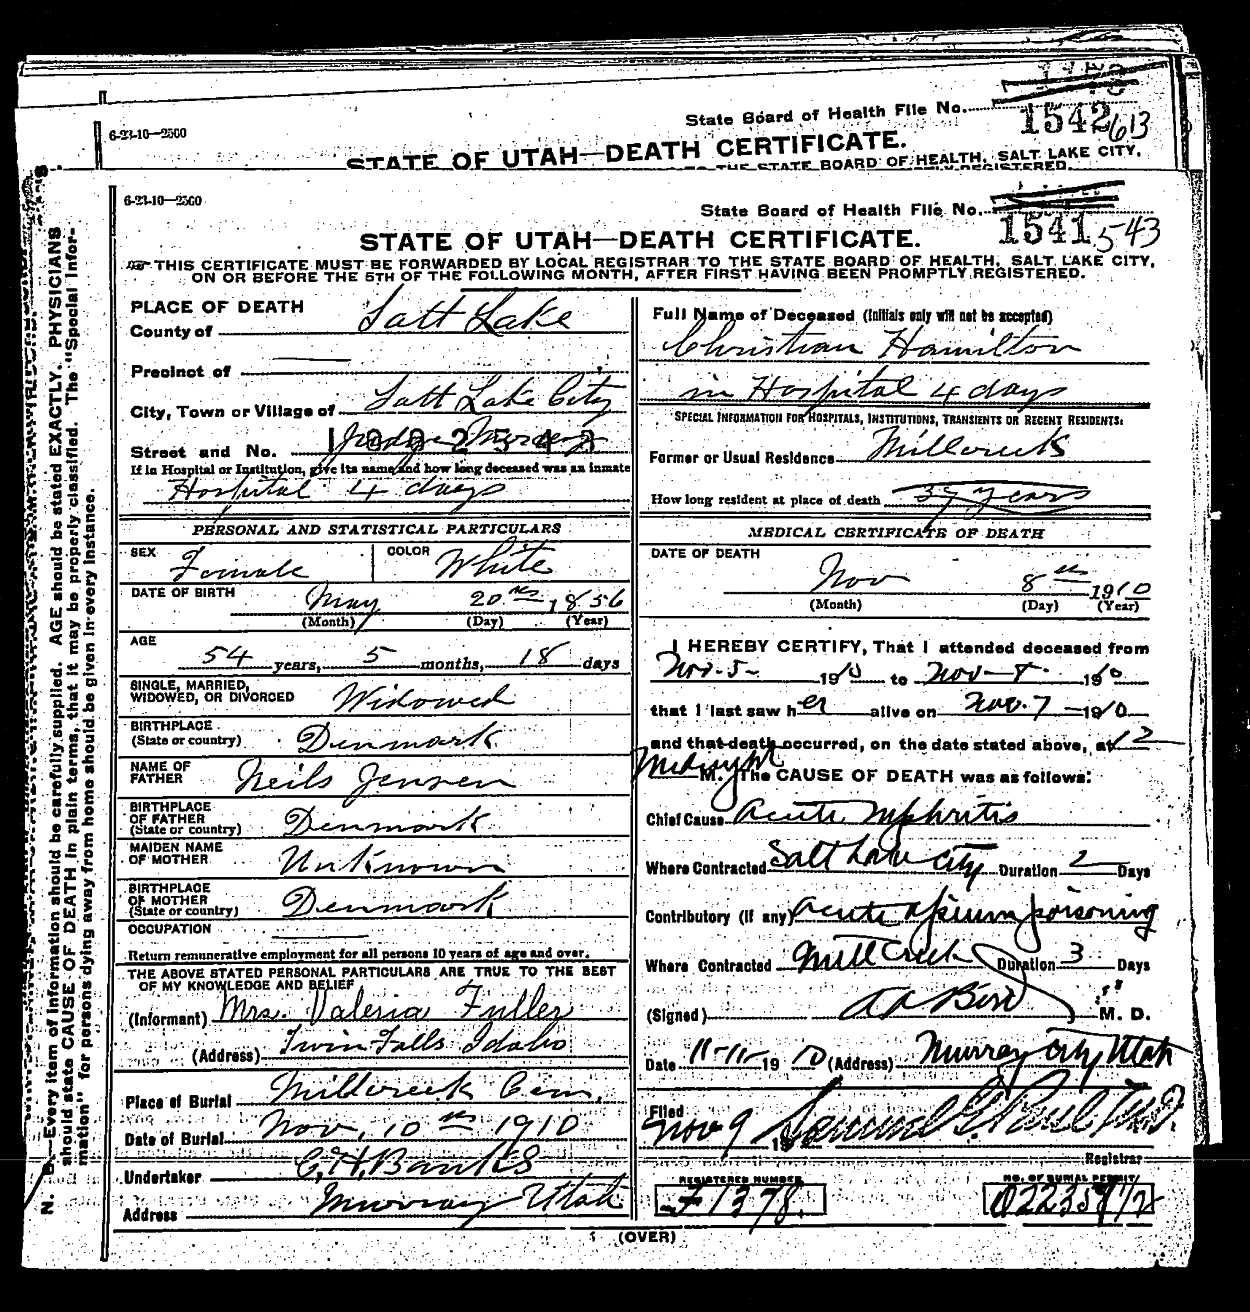 6-23-10—2500
State Board of Health File No.
1542 613
STATE OF UTAH—DEATH CERTIFICATE.
THE STATE BOARD OF HEALTH, SALT LAKE CITY,
REGISTERED.
6-23-10—2500
State Board of Health File No.
1541 543
STATE OF UTAH—DEATH CERTIFICATE.
THIS CERTIFICATE MUST BE FORWARDED BY LOCAL REGISTRAR TO THE STATE BOARD OF HEALTH, SALT LAKE CITY,
ON OR BEFORE THE 5TH OF THE FOLLOWING MONTH, AFTER FIRST HAVING BEEN PROMPTLY REGISTERED.
N. B. Every item of information should be carefully supplied. AGE should be stated EXACTLY. PHYSICIANS
should state CAUSE OF DEATH in plain terms, that it may be properly classified. The "Special Infor-
mation" for persons dying away from home should be given in every instance.
PLACE OF DEATH
County of Salt Lake
Precinct of
City, Town or Village of Salt Lake City
Street and No. Judge Mercy
If in Hospital or Institution, give its name and how long deceased was an inmate
Hospital 4 days
PERSONAL AND STATISTICAL PARTICULARS
SEX Female COLOR White
DATE OF BIRTH May 20th 1856
(Month) (Day) (Year)
AGE
54 years, 5 months, 18 days
SINGLE, MARRIED,
WIDOWED, OR DIVORCED Widowed
BIRTHPLACE
(State or country) Denmark
NAME OF
FATHER Neils Jensen
BIRTHPLACE
OF FATHER
(State or country) Denmark
MAIDEN NAME
OF MOTHER Unknown
BIRTHPLACE
OF MOTHER
(State or country) Denmark
OCCUPATION
Return remunerative employment for all persons 10 years of age and over.
THE ABOVE STATED PERSONAL PARTICULARS ARE TRUE TO THE BEST
OF MY KNOWLEDGE AND BELIEF
(Informant) Mrs. Valeria Fuller
(Address) Twin Falls Idaho
Place of Burial Millcreek Cem.
Date of Burial Nov. 10th 1910
Undertaker
Address Murray Utah
Full Name of Deceased (Initials only will not be accepted)
Christian Hamilton
in Hospital 4 days
SPECIAL INFORMATION FOR HOSPITALS, INSTITUTIONS, TRANSIENTS OR RECENT RESIDENTS:
Former or Usual Residence Millcreek
How long resident at place of death 39 years
MEDICAL CERTIFICATE OF DEATH
DATE OF DEATH
Nov 8th 1910
(Month) (Day) (Year)
I HEREBY CERTIFY, That I attended deceased from
Nov. 5 1910 to Nov 8 1910
that I last saw her alive on Nov. 7 1910
and that death occurred, on the date stated above, at 12
Midnight M. The CAUSE OF DEATH was as follows:
Chief Cause Acute Nephritis
Where Contracted Salt Lake City Duration 2 Days
Contributory (if any) Acute Opium poisoning
Where Contracted Mill Creek Duration 3 Days
(Signed) M. D.
Date 11-11- 1910 (Address) Murray City, Utah
Filed
Nov 9 19 Samuel G. Paul M.D.
Registrar
REGISTERED NUMBER
1378.
NO. OF BURIAL PERMIT
(OVER)